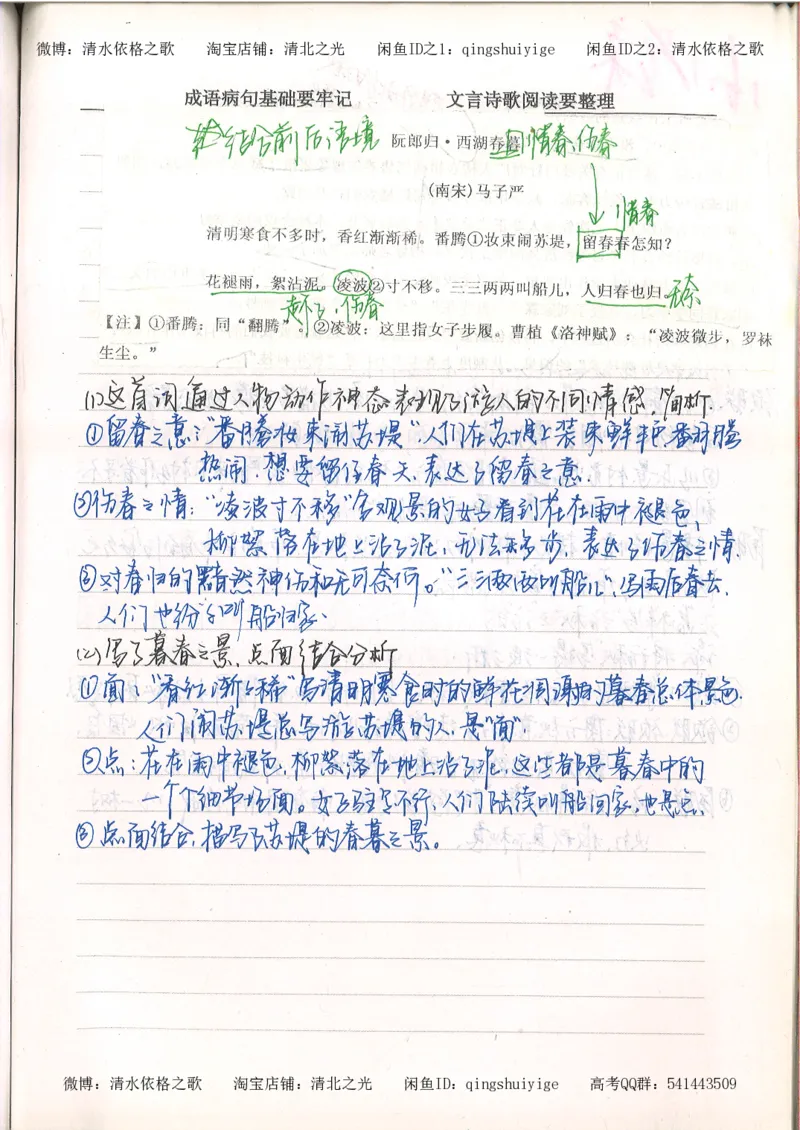 微博：清水依格之歌 淘宝店铺：清北之光 闲鱼ID之1：qingshuiyige 闲鱼ID之2：清水依格之歌
成语病句基础要牢记 文言诗歌阅读要整理
结合前后语境 阮郎归·西湖春暮 惜春、伤春
(南宋)马子严
惜春
清明寒食不多时，香红渐渐稀。番腾①妆束闹苏堤，留春春怎知？
花褪雨，絮沾泥。凌波②寸不移。三三两两叫船儿，人归春也归。无奈
走不了，伤春
【注】①番腾：同“翻腾”。②凌波：这里指女子步履。曹植《洛神赋》：“凌波微步，罗袜
生尘。”
(1)这首词通过人物动作神态表现了游人的不同情感，简析.
①留春之意：“番腾妆束闹苏堤”人们在苏堤上装束鲜丽番腾
热闹，想要留住春天，表达了留春之意.
②伤春之情：“凌波寸不移”写观景的女子看到花在雨中褪色，
柳絮落在地上沾了泥，无法移步，表达了伤春之情.
③对春归的黯然神伤和无可奈何。“三三两两叫船儿”，写雨后春去，
人们也纷纷叫船归家.
(2)写了暮春之景，点面结合分析
①面：“香红渐渐稀”写清明寒食时的鲜花凋零的暮春总体景色.
人们闹苏堤总写游苏堤的人，是“面”.
②点：花在雨中褪色，柳絮落在地上沾了泥，这些都是暮春中的
一个个细节场面。女子驻足不行，人们陆续叫船回家，也是点.
③点面结合，描写了苏堤的春暮之景。
微博：清水依格之歌 淘宝店铺：清北之光 闲鱼ID：qingshuiyige 高考QQ群：541443509